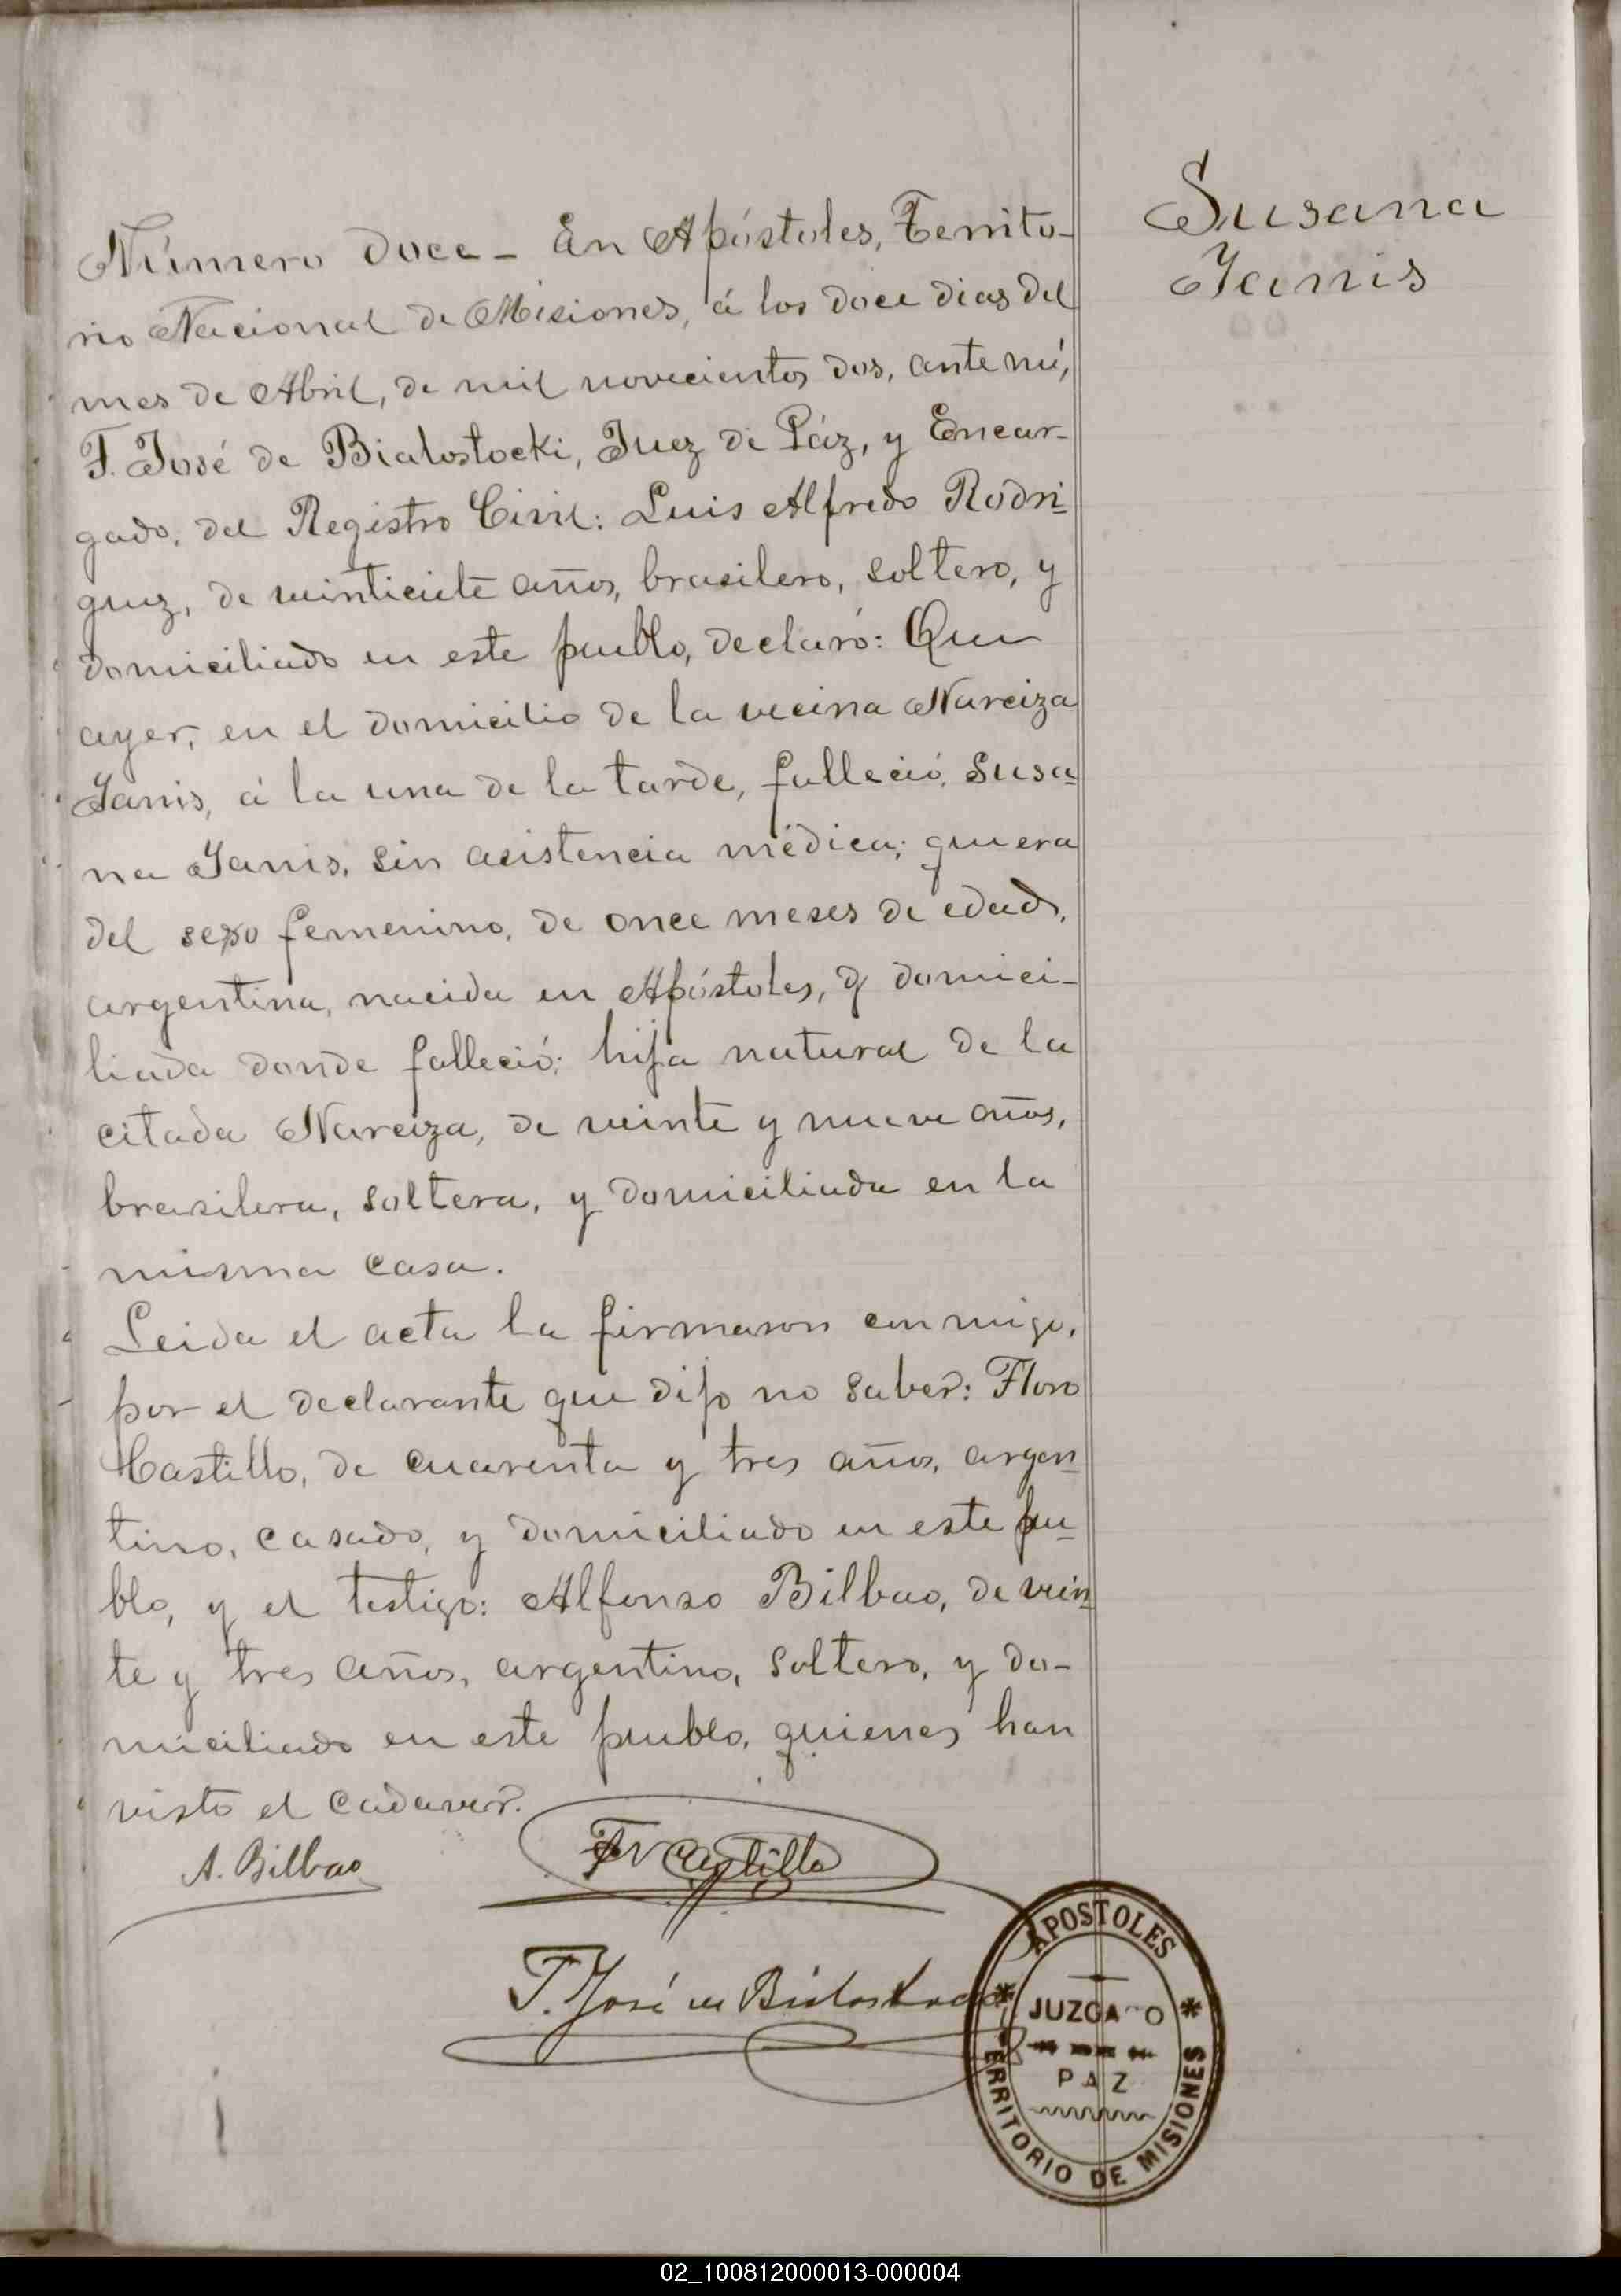 Susana
Yanis
Número doce - En Apóstoles, Territo-
rio Nacional de Misiones, á los doce dias del
mes de Abril, de mil novecientos dos, ante mí,
T. José de Bialostocki, Juez de Páz, y Encar-
gado, del Registro Civil: Luis Alfredo Rodri-
guez, de veintisiete años, brasilero, soltero, y
domiciliado en este pueblo, declaró: Que
ayer, en el domicilio de la vecina Narciza
Yanis, á la una de la tarde, falleció, Susa-
na Yanis, sin asistencia médica; que era
del sexo femenino, de once meses de edad,
argentina, nacida en Apóstoles, y domici-
liada donde falleció; hija natural de la
citada Narciza, de veinte y nueve años,
brasilera, soltera, y domiciliada en la
misma casa.
Leida el acta la firmaron conmigo,
por el declarante que dijo no saber: Floro
Castillo, de cuarenta y tres años, argen-
tino, casado, y domiciliado en este pue-
blo, y el testigo: Alfonso Bilbao, de vein-
te y tres años, argentino, soltero, y do-
miciliado en este pueblo, quienes han
visto el cadaver.
A. Bilbao
Castillo
T. José de Bialostocki
APOSTOLES
JUZGADO
PAZ
TERRITORIO DE MISIONES
02_100812000013-000004